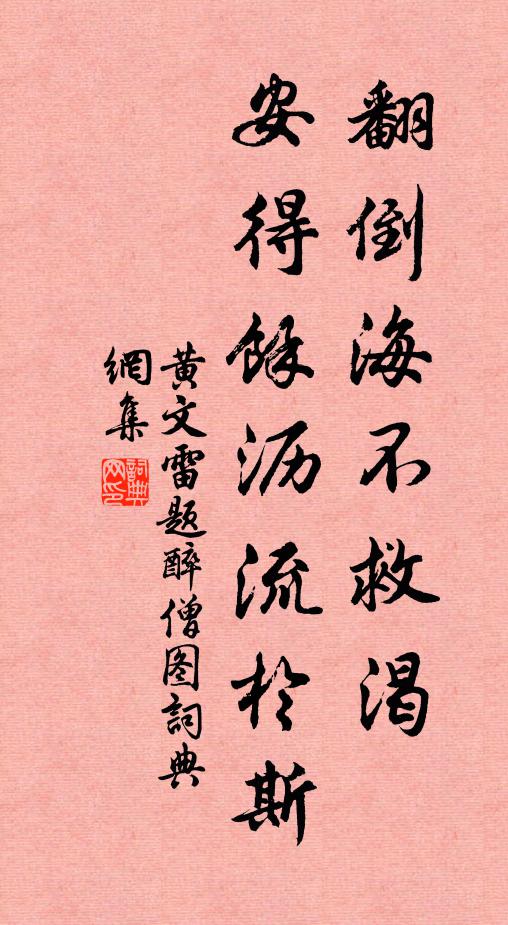 翻倒海不救渴
安得餘沥流於斯
黄文雷题醉僧图詞典
網集
詞典網印